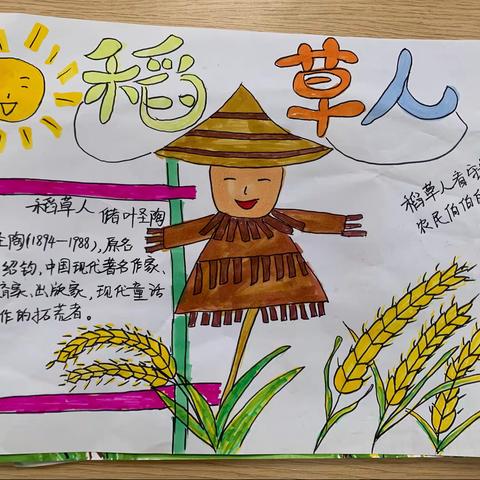 稻草人
稻草人 作者叶圣陶
圣陶(1894—1788),原名
绍钧,中国现代著名作家、
育家、出版家,现代童话
作的拓荒者。
稻草人看
农民伯伯